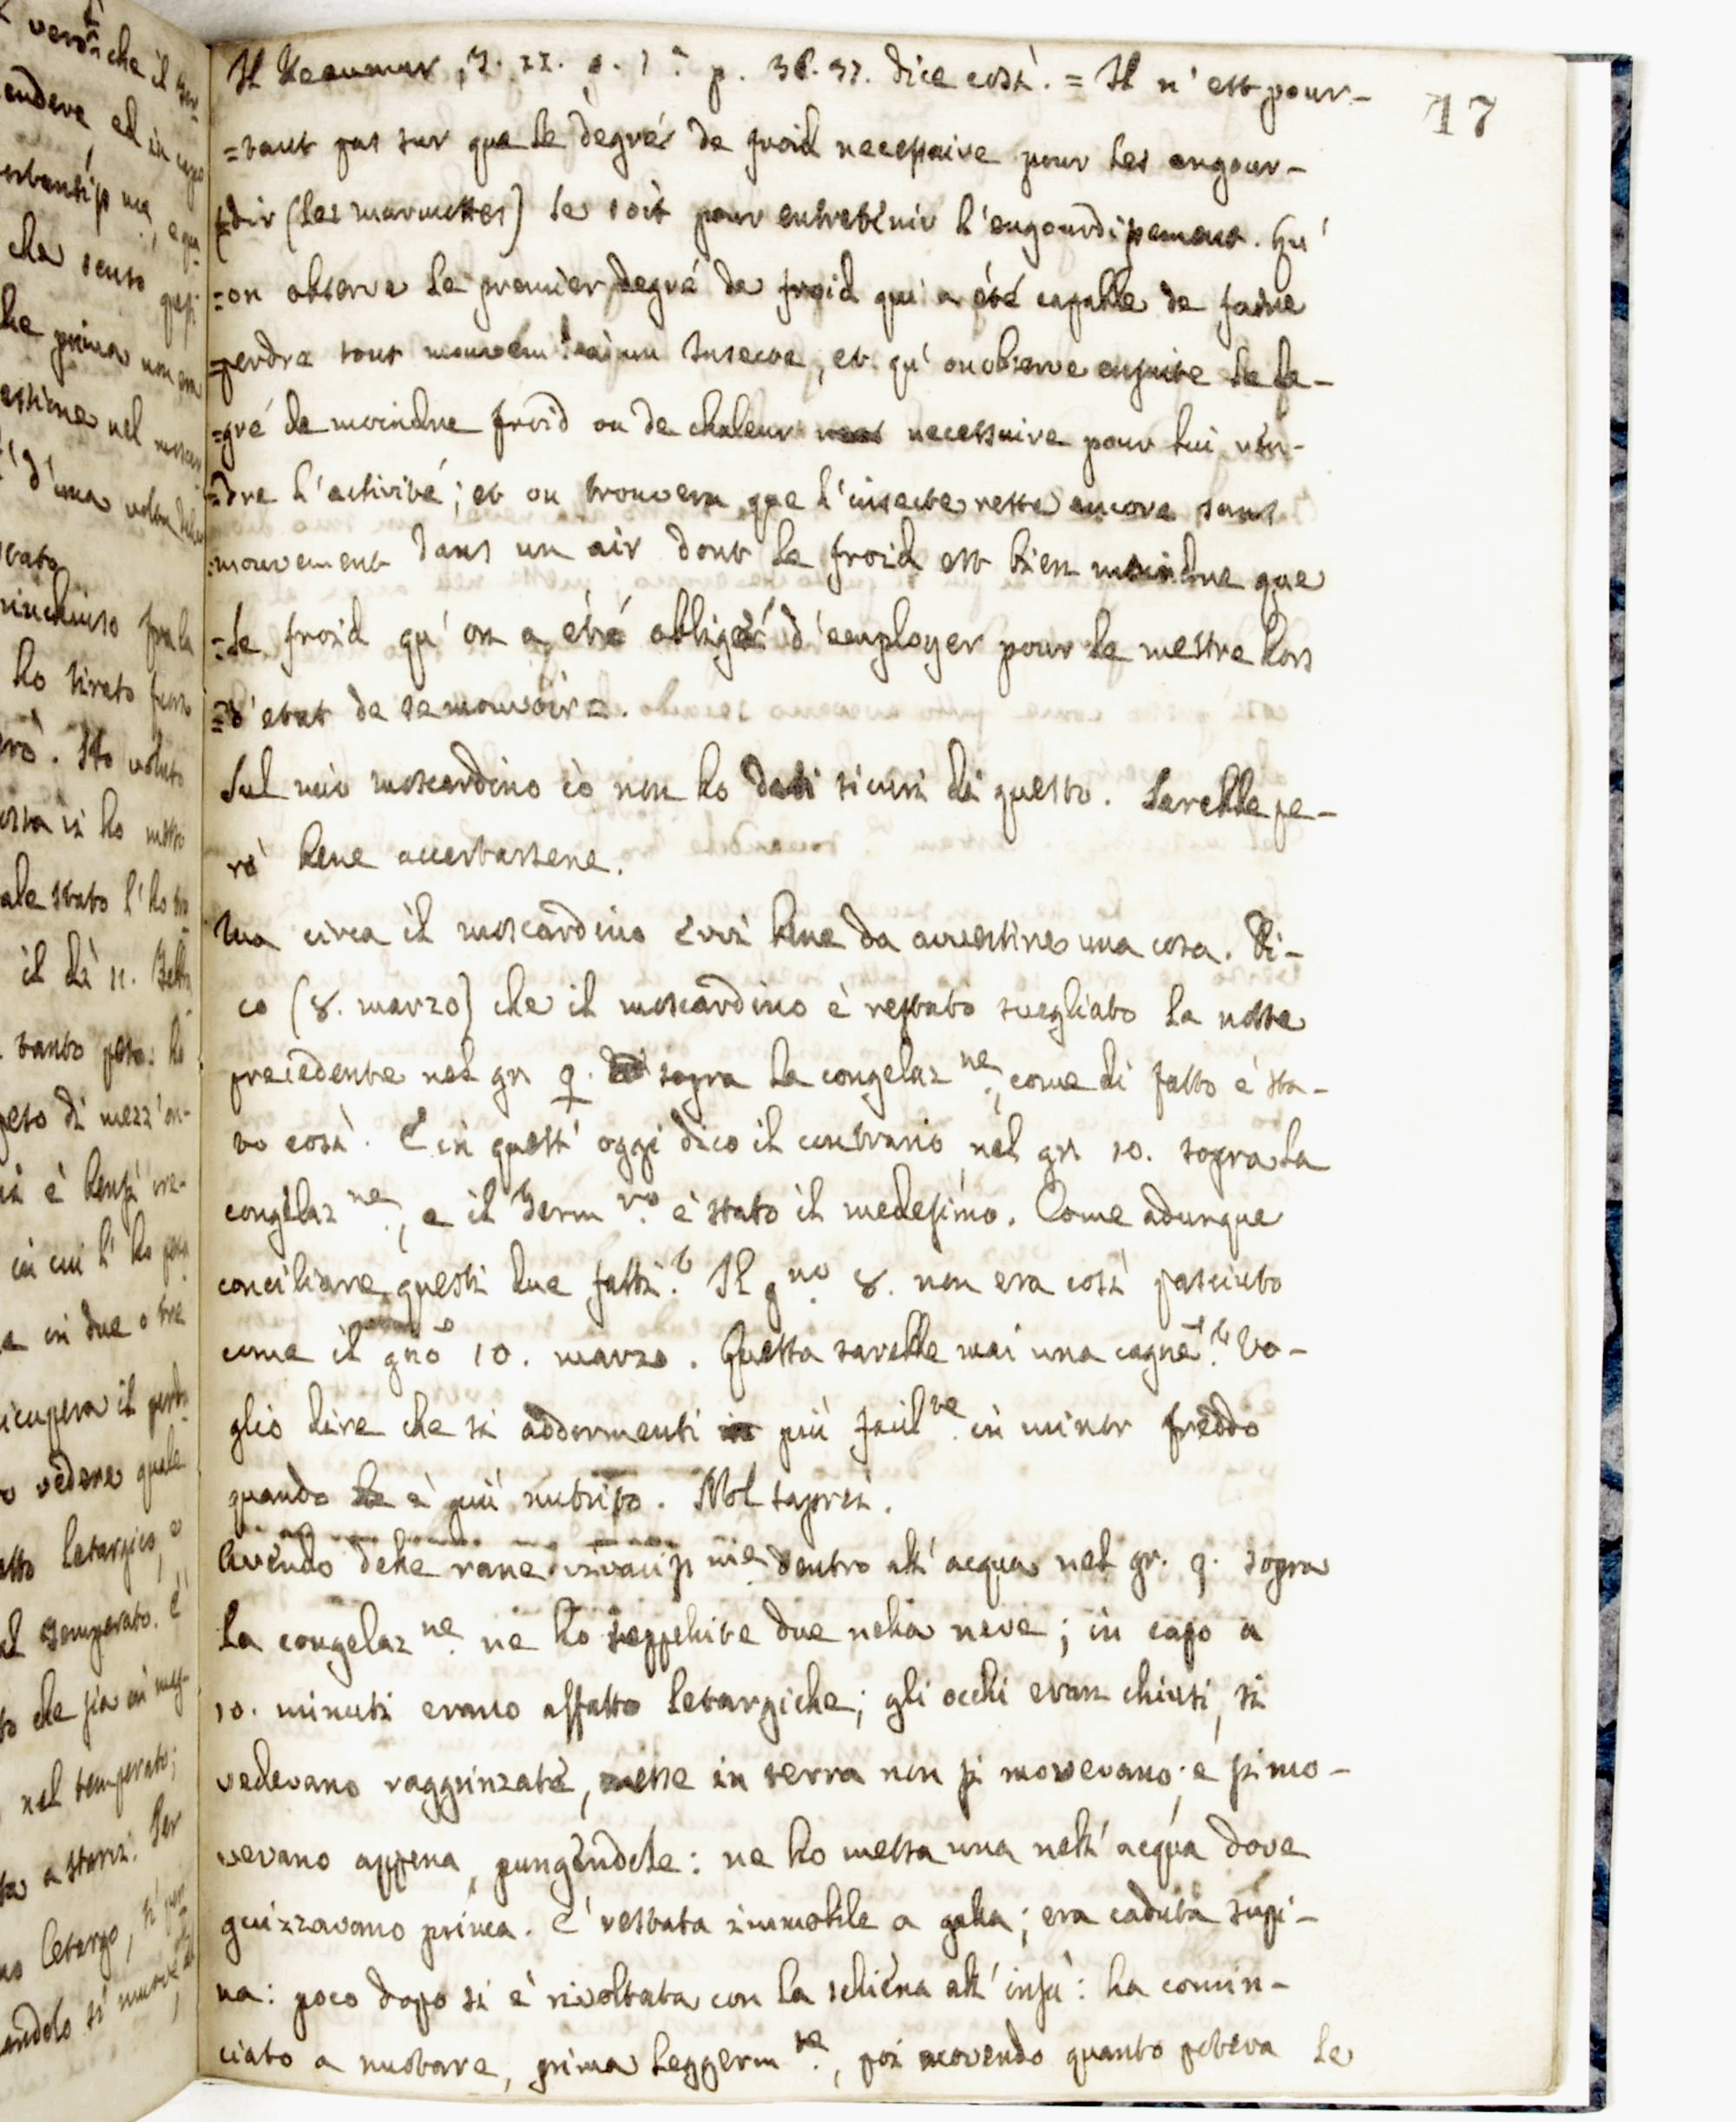 17
Il Reaumur, T. II. p. 1.ª p. 36. 37. dice così. = Il n'est pour-
=tant pas sur que le degré de froid necessaire pour les engour-
=dir (les marmottes) le soit pour entretenir l'engourdissement. Qu'
=on observe le premier degré de froid qui a été capable de faire
=perdre tout mouvem.t à un Insecte, et qu'on observe ensuite le de-
=gré de moindre froid ou de chaleur necessaire pour lui ren-
=dre l'activité; et on trouvera que l'insecte reste encore sans
=mouvement dans un air dont le froid est bien moindre que
=le froid qu'on a été obligé d'employer pour le mettre hors
=d'etat de se mouvoir =.
Sul mio moscardino io non ho dati sicuri di questo. Sarebbe pe-
rò bene accertarsene.
Ma circa il moscardino evvi bene da avvertire una cosa. Di-
co (8. marzo) che il moscardino è restato svegliato la notte
precedente nel gr. 9. sopra la congelaz.ne, come di fatto è sta-
to così. E in quest'oggi dico il contrario nel gr. 10. sopra la
congelaz.ne, e il Term.ro è stato il medesimo. Come adunque
conciliare questi due fatti? Il g.no 8. non era così pasciuto
come il gno 10. marzo. Questa sarebbe mai una cagne? Vo-
glio dire che si addormenti più facil.te in minor freddo
quando è più nutrito. Nol saprei.
Avendo delle rane vivaciss.me dentro all'acqua nel gr. 9. sopra
la congelaz.ne ne ho seppelite due nella neve; in capo a
10. minuti erano affatto letargiche; gli occhi eran chiusi, si
vedevano raggrinzate, messe in terra non si movevano; e si mo-
vevano appena, pungendole: ne ho messa una nell'acqua dove
guizzavano prima. E' restata immobile a galla; era caduta supi-
na: poco dopo si è rivoltata con la schiena all'insù: ha comin-
ciato a nuotare, prima leggerm.te, poi movendo quanto poteva le